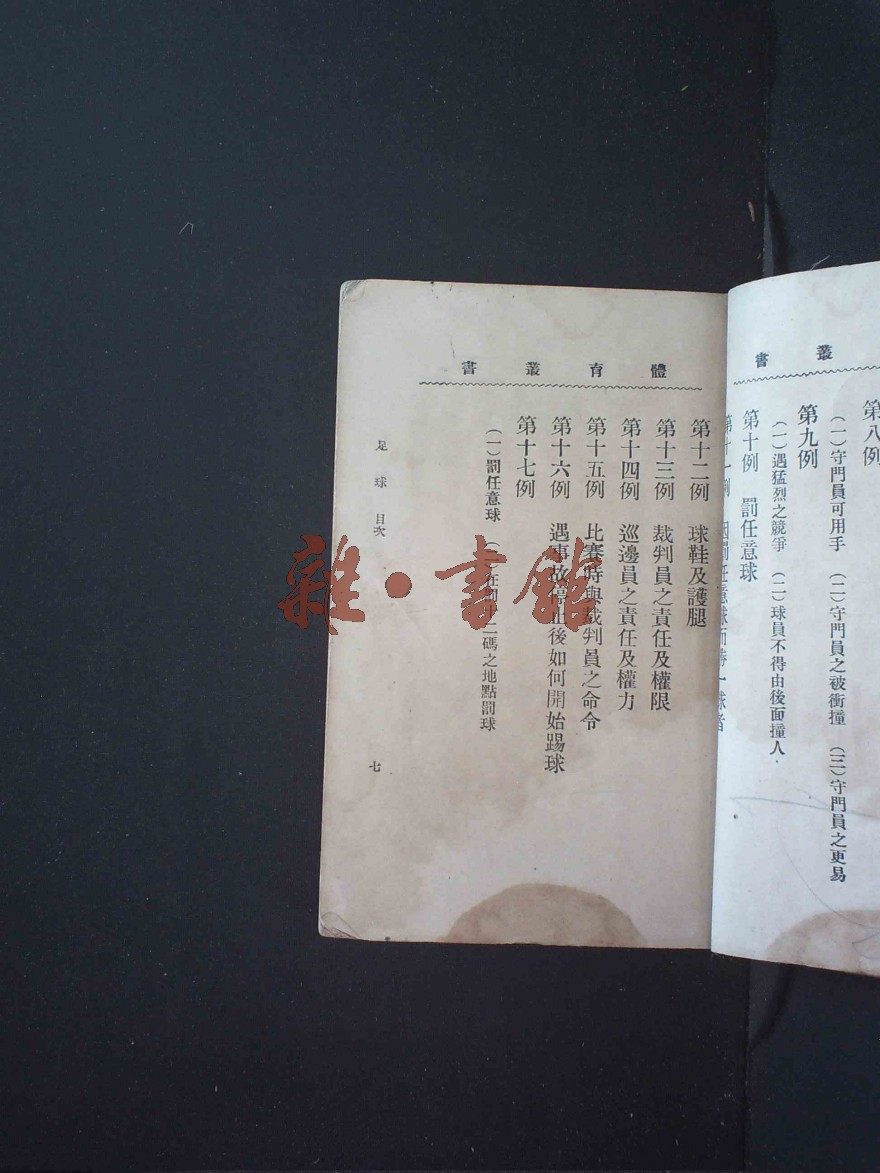 叢書
第八例
(一)守門員可用手 (二)守門員之被衝撞 (三)守門員之更易
第九例
(一)遇猛烈之競爭 (二)球員不得由後面撞人
第十例 罰任意球
第十一例 因罰任意球而勝一球者
體育叢書
第十二例 球鞋及護腿
第十三例 裁判員之責任及權限
第十四例 巡邊員之責任及權力
第十五例 比賽時與裁判員之命令
第十六例 遇事故停止後如何開始踢球
第十七例
(一)罰任意球 在 十二碼之地點罰球
足球 目次
七
雜·書館